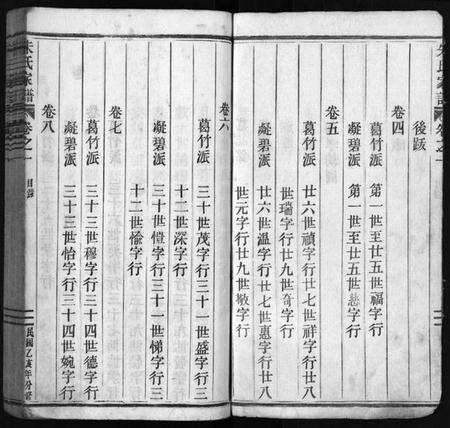 後跋
卷四
葛竹派 第一世至廿五世福字行
凝碧派 第一世至廿五世慈字行
卷五
葛竹派 廿六世禎字行廿七世祥字行廿八
世瑞字行廿九世奇字行
凝碧派 廿六世溫字行廿七世惠字行廿八
世元字行廿九世敬字行
卷六
葛竹派 三十世茂字行三十一世盛字行三
十二世深字行
凝碧派 三十世愷字行三十一世悌字行三
十二世倫字行
卷七
葛竹派 三十三世穆字行三十四世德字行
凝碧派 三十三世恪字行三十四世婉字行
卷八
朱氏家譜
卷之一
目錄
民國乙亥年